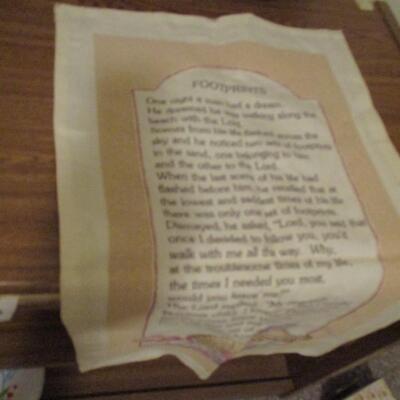 FOOTPRINTS
One night a man had a dream.
He dreamed he was walking along the
beach with the Lord.
Scenes from his life flashed across the
sky and he noticed two sets of footprints
in the sand, one belonging to him
and the other to the Lord.
When the last scene of his life had
flashed before him, he recalled that at
the lowest and saddest times of his life
there was only one set of footprints.
Dismayed, he asked, "Lord, you said that
once I decided to follow you, you'd
walk with me all the way. Why,
at the troublesome times of my life,
the times I needed you most,
would you leave me?"
The Lord replied, "My